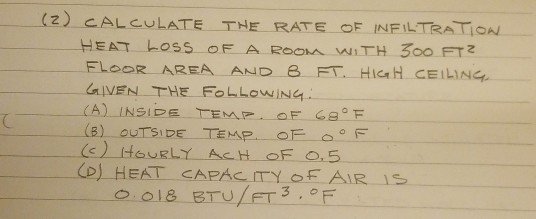 (2) CALCULATE THE RATE OF INFILTRATION
HEAT LOSS OF A ROOM WITH 300 FT2
FLOOR AREA AND 8 FT. HIGH CEILING
GIVEN THE FOLLOWING:
(A) INSIDE TEMP. OF 68°F
(B) OUTSIDE TEMP. OF 0°F
(C) HOURLY ACH OF 0.5
(D) HEAT CAPACITY OF AIR IS
0.018 BTU/FT3.°F